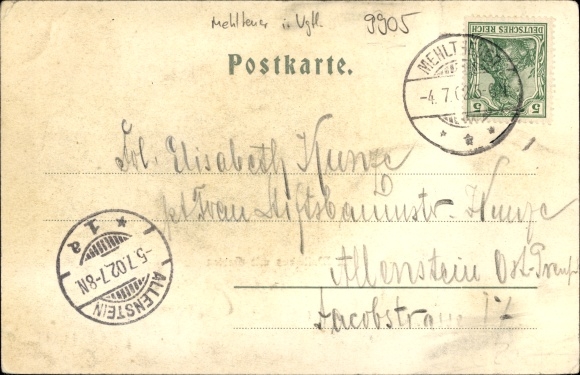 Mehltheuer i. Vgtl. 9905
Postkarte.
DEUTSCHES REICH
5 5
MEHLTHEUER
-4.7.02
Frl. Elisabeth Kunze
Frau Kunze
Allenstein Ost-Preuß
Jacobstr
ALLENSTEIN
-5.7.02.7-8N.
* 1a